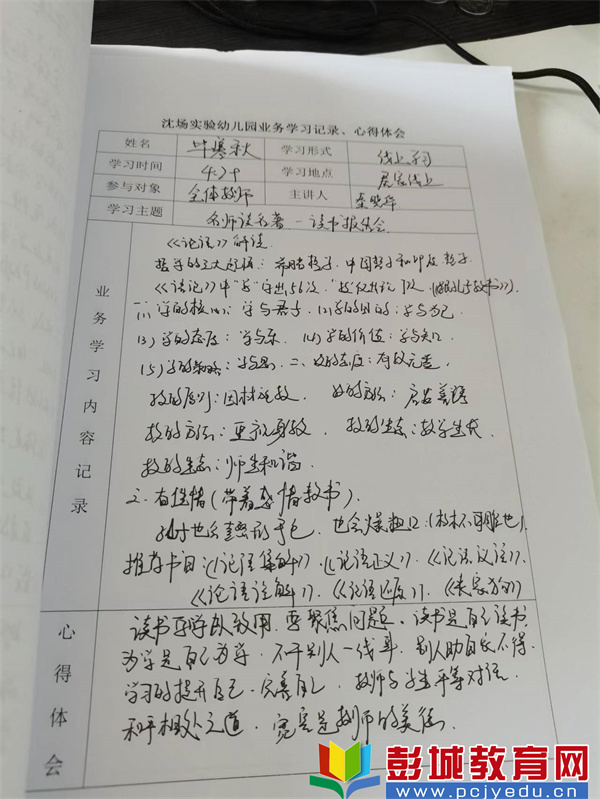 沈场实验幼儿园业务学习记录、心得体会
姓名 叶 秋 学习形式 线上学习
学习时间 4.29 学习地点 居家线上
参与对象 全体教师 主讲人
学习主题 名师谈名著－读书报告会
业务学习内容记录
《论语》解读
哲学的三大起源：希腊哲学、中国哲学和印度哲学
《论语》中“学”字出56次，“教”仅
一、学的核心：学与君子 (2)学的目的：学与己
(3)学的态度：学与乐 (4)学的价值：学与
(5)学的策略：学与思 二、教的态度：有教无类
教的原则：因材施教 教的方法：启发善诱
教的方法：重视身教 教的生态：教学生长
教的生态：师生和谐
2.有性情(带着感情教书)
也会 也会爆粗口(朽木不可雕也)
推荐书目：《论语集解》、《论语正义》、《论语议注》、
《论语注解》、《论语还原》、《丧家狗》
心得体会
读书要学以致用，要聚焦问题、读书是自己读书
为学是自己为学，不干别人一线事，别人助自家不得
学习的提升自己、完善自己、教师与学生平等对话
和平相处之道，宽容是教师的美德
彭城教育网
www.pcjyedu.cn